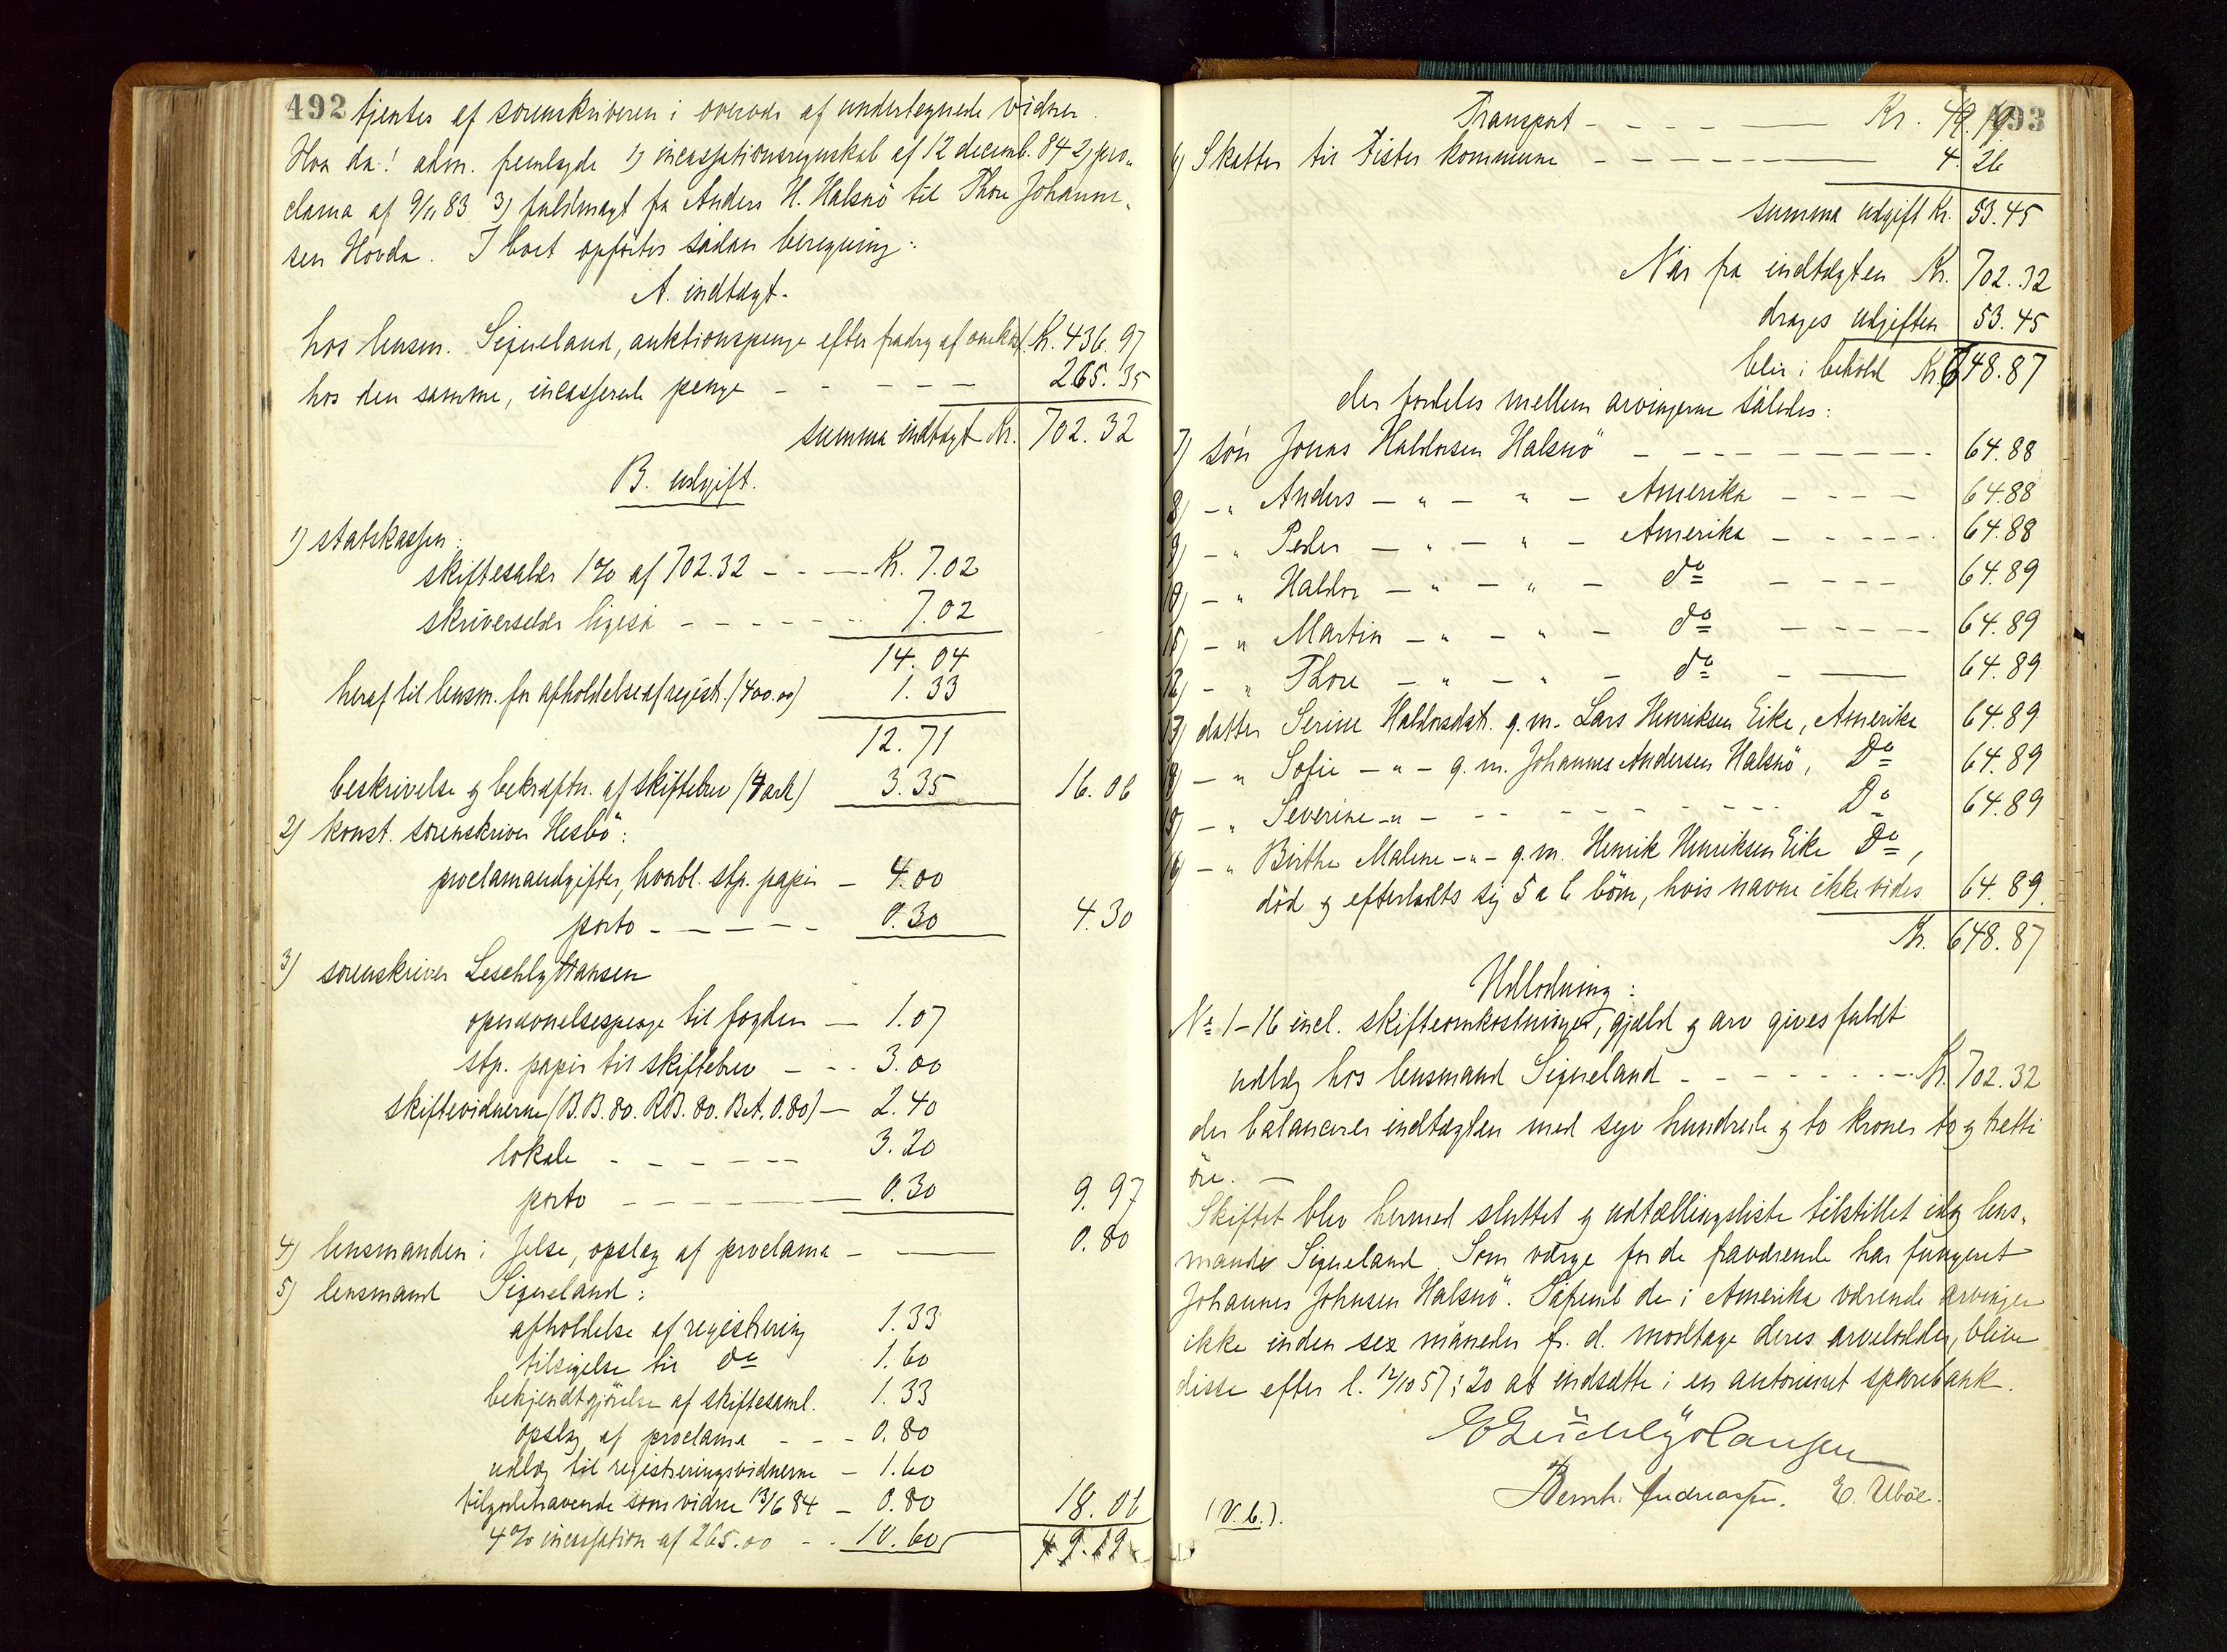 492 tjentes af sorenskriveren i overvær af undertegnede vidner.
Hvor da: adm. fremlagde 1) incassationsregnskab af 12 decemb. 84 2) pro„
clama af 9/11 83 3) fuldmagt fra Anders H. Halsnö til Thore Johanne„
sen Hovda. I boet opførtes sådan beregning:
A. indtægt.
hos lensm. Sigveland, auktionspenge efter fradrag af omkost. Kr. 436.97
hos den samme, incasserede penge - - - - - 265.35
summa indtægt Kr. 702.32
B. udgift.
1) statskassen:
skiftesalær 1% af 702.32 - - - Kr. 7.02
skriversalær ligeså - - - - - 7.02
14.04
heraf til lensm. for afholdelse af regist. (400.00) 1.33
12.71
beskrivelse og bekræftn. af skiftebrev (4 ark) 3.35 16.06
2) konst. sorenskriver Hesbö:
proclamaudgifter, hvorbl. stp. papir - 4.00
porto - - - - - 0.30 4.30
3) sorenskriver Leschly Hansen
opernevnelsespenge til fogden - 1.07
stp. papir til skiftebrev - - - 3.00
skiftevidnerne (B.B. 80. R.B. 80. B.A. 0.80) - 2.40
lokale - - - - - - 3.20
porto - - - - - 0.30 9.97
4) lensmanden i Jelse, opslag af proclama - - 0.80
5) lensmand Sigveland:
afholdelse af registrering 1.33
tilsigelse til do 1.60
bekjendtgjörelse af skiftesaml. 1.33
opslag af proclama - - - 0.80
udlæg til registreringsvidnerne - 1.60
tilgodehavende som vidne 13/6 84 - 0.80
4% incassation af 265.00 - - 10.60 18.06
49.19
493
Transport - - - - Kr. 49.19
6) Skatter til Fister kommune - - - - - - 4.26
summa udgift Kr. 53.45
Når fra indtægten Kr. 702.32
drages udgiften 53.45
blir i behold Kr. 648.87
der fordeles mellem arvingerne således:
7) sön Jonas Haldorsen Halsnö - - - - - - - 64.88
8) - „ Anders - „ - „ - Amerika - - - - 64.88
9) - „ Peder - „ - „ - Amerika - - - - - 64.88
10) - „ Haldor - „ - „ - do - - - - 64.89
11) - „ Martin - „ - „ - do - - - - - 64.89
12) - „ Thore - „ - „ - do - - 64.89
13) datter Serine Haldorsdat. g.m. Lars Henriksen Eike, Amerika 64.89
14) - „ Sofie - „ - g.m. Johannes Andersen Halsnö, Do 64.89
15) - „ Severine - „ - - - - - - - - - - Do 64.89
16) - „ Birthe Malene - „ - g.m. Henrik Henriksen Eike Do,
död og efterladts sig 5 a 6 börn, hvis navne ikke vides 64.89
Kr. 648.87
Udlodning:
No 1-16 incl. skifteomkostninger, gjæld og arv gives fuldt
udlæg hos lensmand Sigveland - - - - - - - Kr. 702.32
der balancerer indtægten med syv hundrede og to kroner to og tretti
öre. -
Skiftet blev hermed sluttet og udtællingsliste tilstillet idag lens„
mand Sigveland. Som værge for de fraværende har fungeret
Johannes Johnsen Halsnö. Såfremt de i Amerika værende arvinger
ikke inden sex måneder fr. d. modtage deres arvelodder, bliver
disse efter l. 12/10 57 § 20 at indsætte i en autoriseret sparebank.
E Leschly Hansen
Bernh. Andreassen. E. Uböe.
(V. b.).